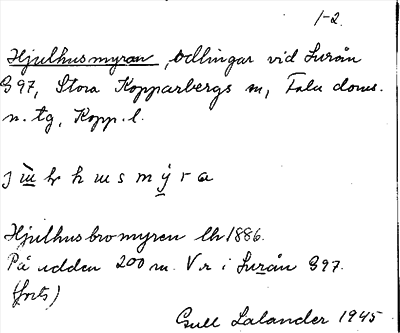 1-2.
Hjulhusmyran, odlingar vid Lurån
G97, Stora Kopparbergs sn, Falu doms.
n. tg, Kopp. l.
Hjulhusbromyren lh 1886.
På udden 200 m. V. r i Lurån G97.
(forts)
Gull Lalander 1945